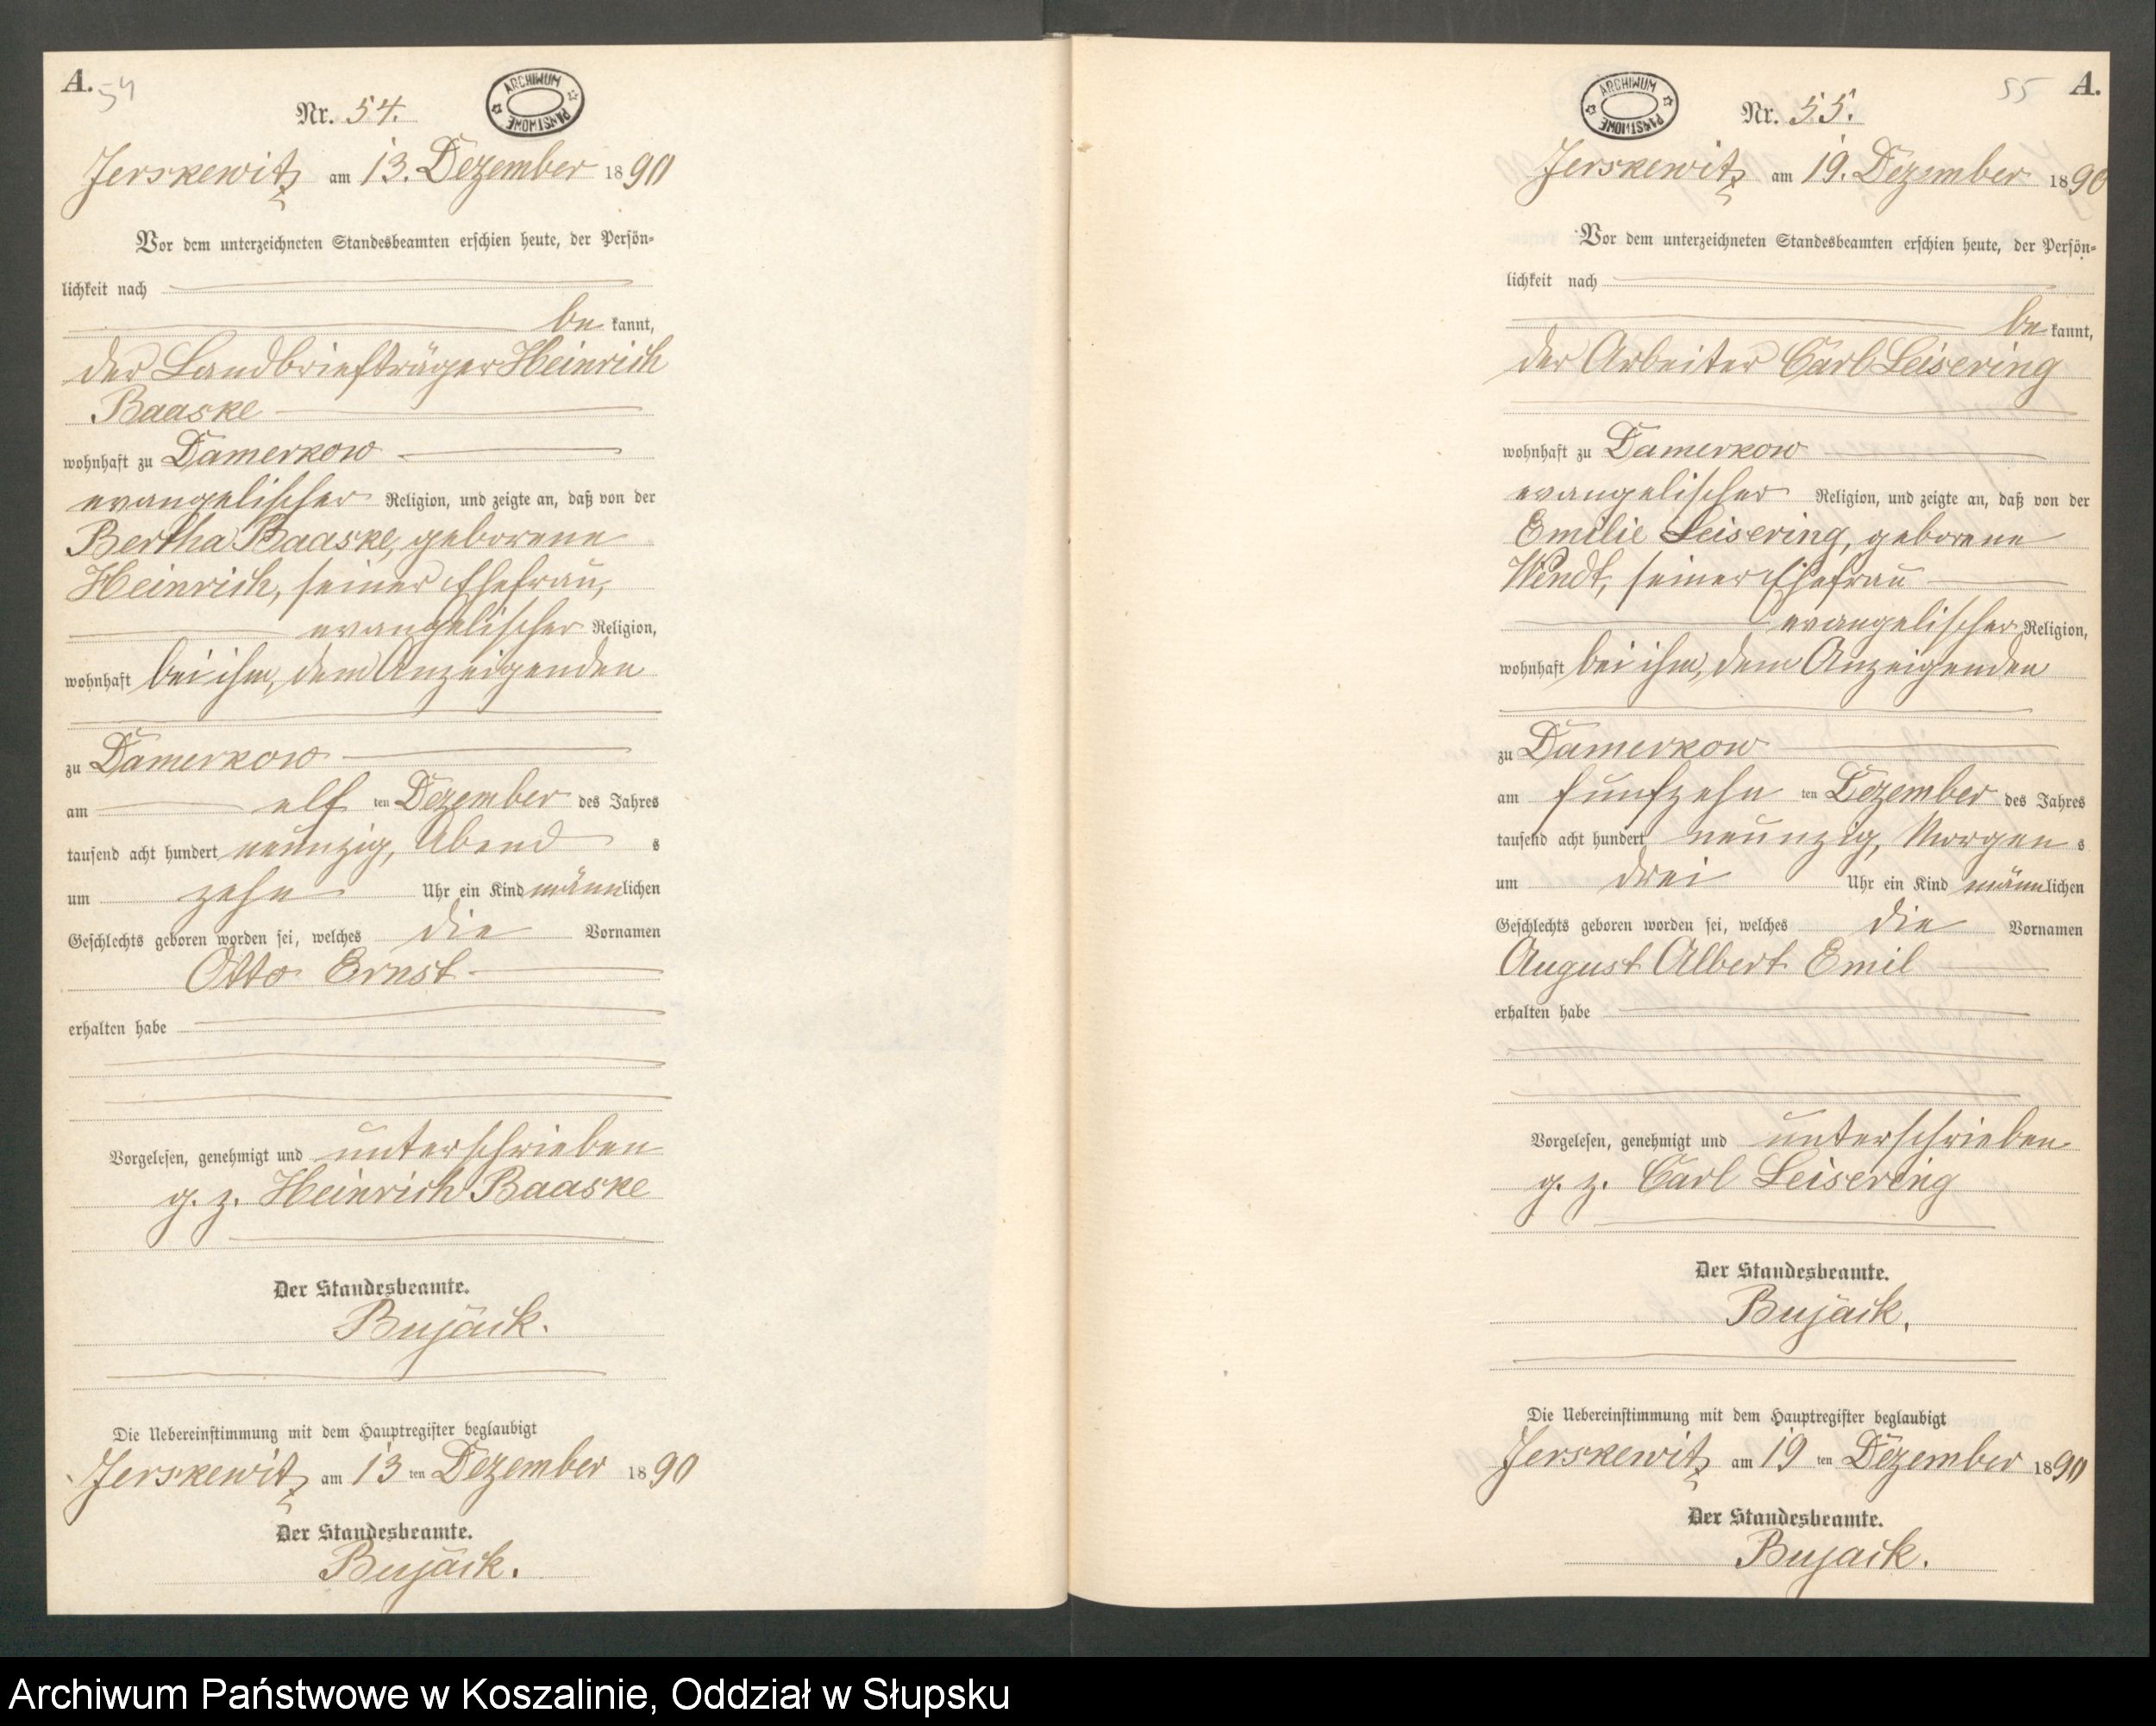 A.
54
Nr. 54.
ARCHIWUM PAŃSTWOWE
Jerskewitz am 13. Dezember 1890
Vor dem unterzeichneten Standesbeamten erschien heute, der Persön-
lichkeit nach
be kannt,
der Landbriefträger Heinrich
Baaske
wohnhaft zu Damerkow
evangelischer Religion, und zeigte an, daß von der
Bertha Baaske, geborene
Heinrich, seiner Ehefrau,
evangelischer Religion,
wohnhaft bei ihm, dem Anzeigenden
zu Damerkow
am elf ten Dezember des Jahres
tausend acht hundert neunzig, Abend s
um zehn Uhr ein Kind männlichen
Geschlechts geboren worden sei, welches die Vornamen
Otto Ernst
erhalten habe
Vorgelesen, genehmigt und unterschrieben
g. z. Heinrich Baaske
Der Standesbeamte.
Bujack.
Die Uebereinstimmung mit dem Hauptregister beglaubigt
Jerskewitz am 13 ten Dezember 1890
Der Standesbeamte.
Bujack.
55
A.
Nr. 55.
ARCHIWUM PAŃSTWOWE
Jerskewitz am 19. Dezember 1890
Vor dem unterzeichneten Standesbeamten erschien heute, der Persön-
lichkeit nach
be kannt,
der Arbeiter Carl Leisering
wohnhaft zu Damerkow
evangelischer Religion, und zeigte an, daß von der
Emilie Leisering, geborene
Wendt, seiner Ehefrau
evangelischer Religion,
wohnhaft bei ihm, dem Anzeigenden
zu Damerkow
am fünfzehn ten Dezember des Jahres
tausend acht hundert neunzig, Morgen s
um drei Uhr ein Kind männlichen
Geschlechts geboren worden sei, welches die Vornamen
August Albert Emil
erhalten habe
Vorgelesen, genehmigt und unterschrieben
g. z. Carl Leisering
Der Standesbeamte.
Bujack.
Die Uebereinstimmung mit dem Hauptregister beglaubigt
Jerskewitz am 19 ten Dezember 1890
Der Standesbeamte.
Bujack.
Archiwum Państwowe w Koszalinie, Oddział w Słupsku